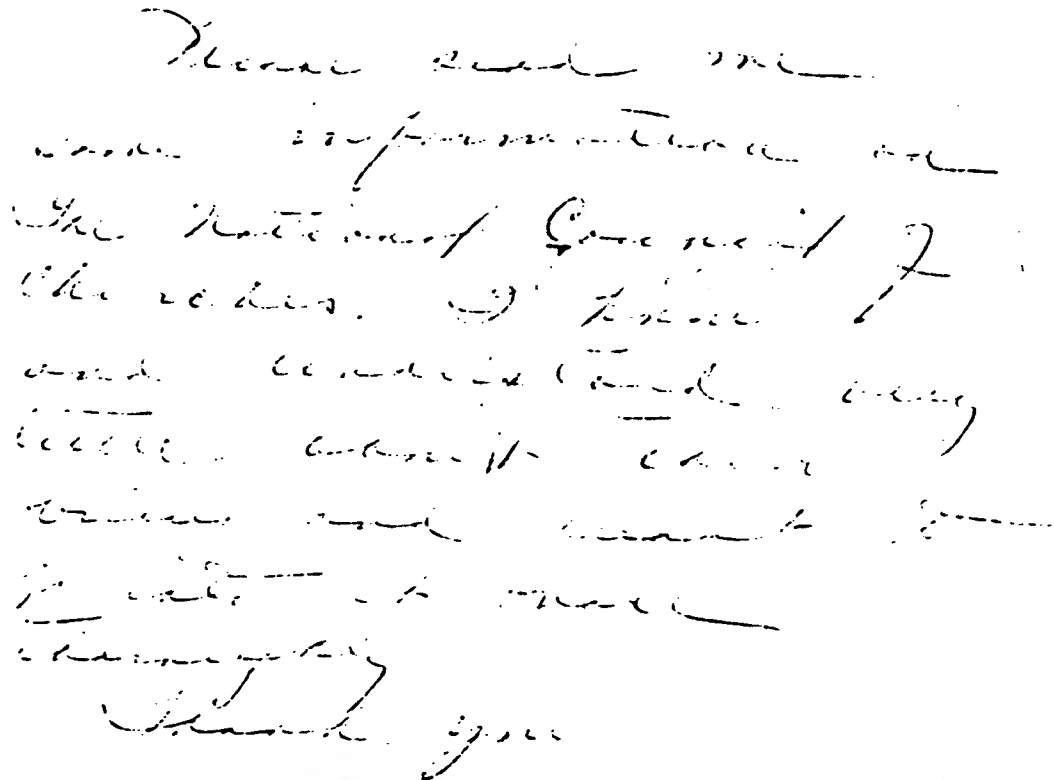 Please send me
some information on
The National Council of
Churches. I know
and understand very
little about their
views and want
to it more
thoroughly
Thank you